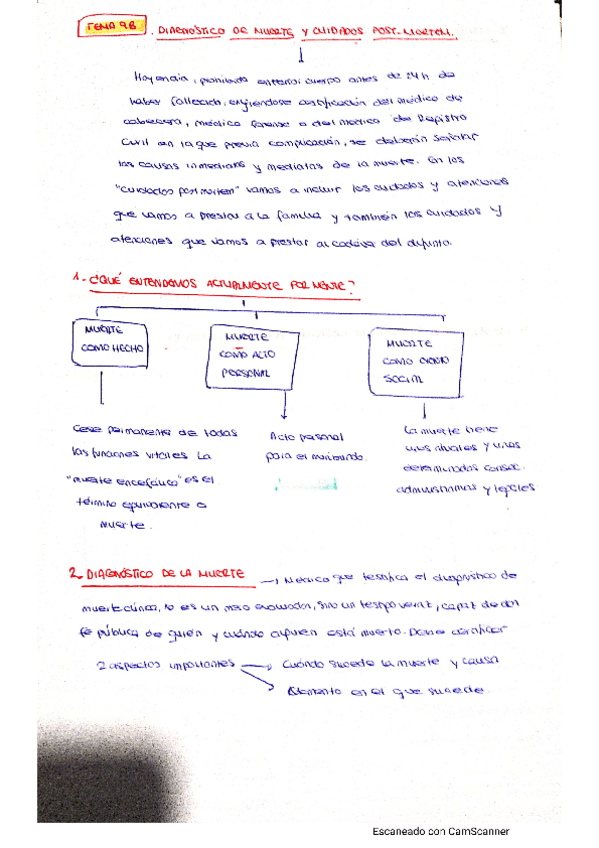 TEMA 9B. DIAGNÓSTICO DE MUERTE Y CUIDADOS POST-MORTEM.
Hoy en día, prohibido enterrar cuerpo antes de 24h de
haber fallecido, exigiéndose certificación del médico de
cabecera, médico forense o del médico del Registro
Civil en la que previa complicación, se deberán señalar
las causas inmediatas y mediatas de la muerte. En los
"cuidados postmortem" vamos a incluir los cuidados y atenciones
que vamos a prestar a la familia y también los cuidados y
atenciones que vamos a prestar al cadáver del difunto.
1.- ¿QUÉ ENTENDEMOS ACTUALMENTE POR MENTE?
MUERTE
COMO HECHO
MUERTE
COMO ACTO
PERSONAL
MUERTE
COMO
SOCIAL
Cese permanente de todas
las funciones vitales. La
"muerte encefálica" es el
término equivalente a
muerte.
Acto personal
para el moribundo.
La muerte tiene
unos rituales y unas
determinadas consec.
administrativas y legales
2. DIAGNÓSTICO DE LA MUERTE → Médico que testifica el diagnóstico de
muerte clínica, no es un mero evaluador, sino un testigo veraz, capaz de dar
fe pública de quién y cuándo alguien está muerto. Debe certificar
2 aspectos importantes → Cuándo sucede la muerte y causa
→ Momento en el que sucede.
Escaneado con CamScanner